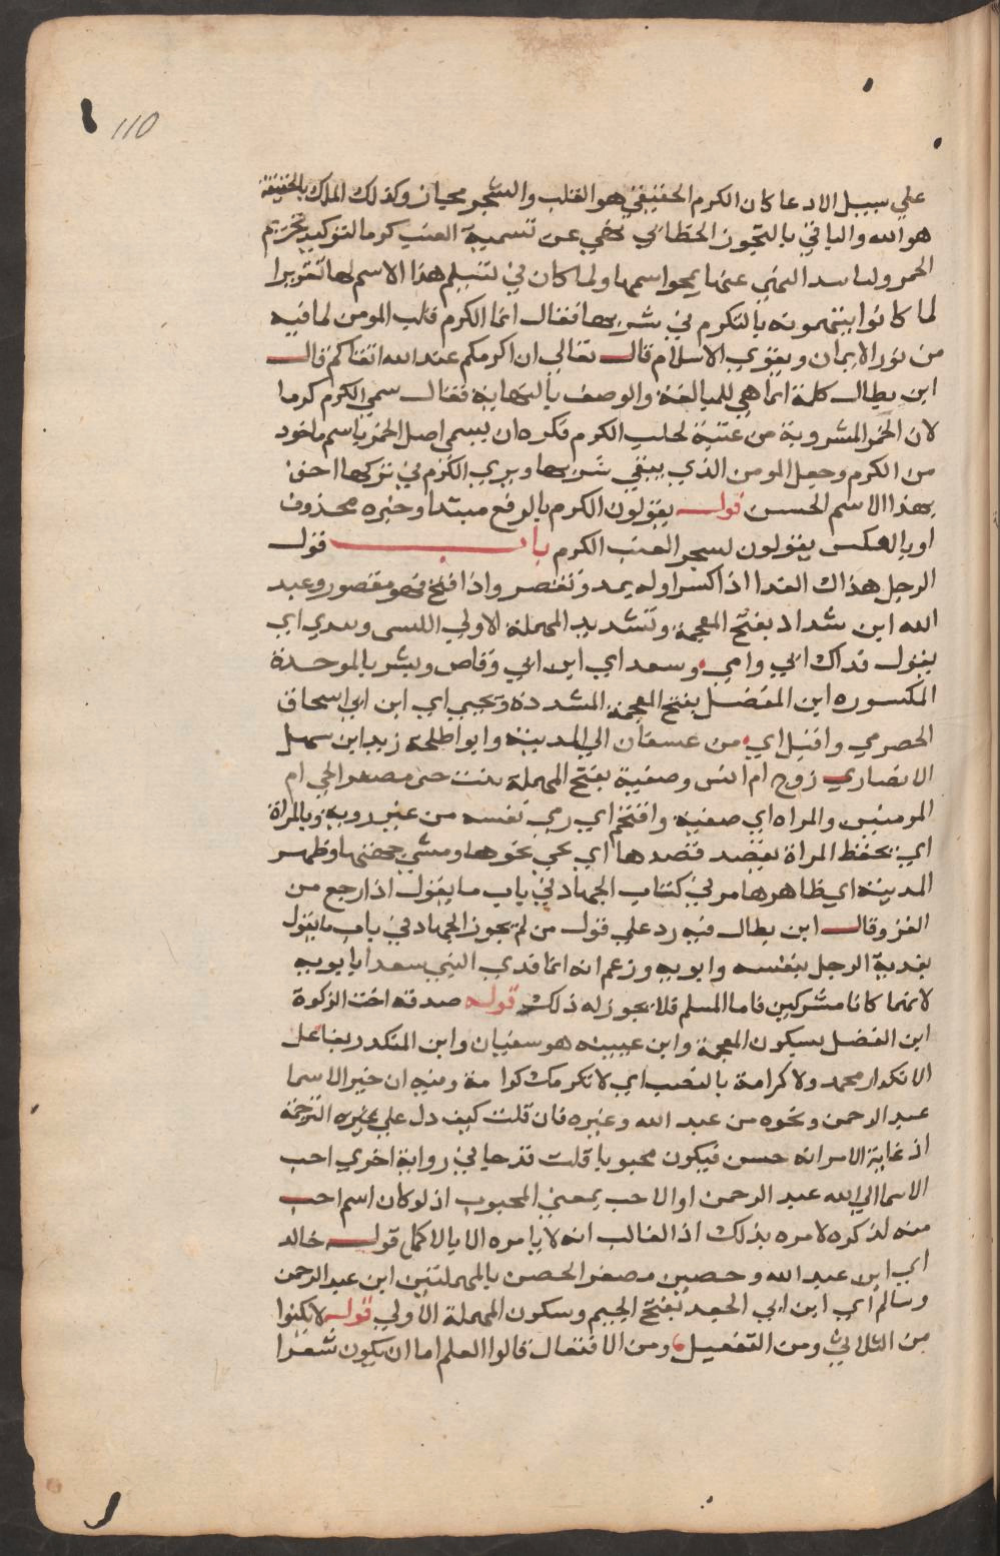 110
علي سبيل الادعا كان الكرم الحقيقي هو القلب والشجر مجاز وكذلك الملك بالحقيقة
هو الله والباقي بالتجوز الخطابي نهي عن تسمية العنب كرما لتوكيد تحريم
الخمر ولتاسد النهي عنها بمحو اسمها ولما كان في تسليم هذا الاسم لها تقريرا
لما كانوا يتوهمونه بالتكرم في شربها فقال انما الكرم قلب المومن لما فيه
من نور الايمان وبقوي الاسلام قال تعالي ان اكرمكم عند الله اتقاكم قال
ابن بطال كلمة انما هي للمبالغة والوصف بالنهاية فقال سمي الكرم كرما
لان الخمر المشروبة من عنبه تحث الكرم فكره ان يسمي اصل الخمر باسم ماخود
من الكرم وجعل المومن الذي يتقي شربها ويري الكرم في تركها احق
بهذا الاسم الحسن قوله يقولون الكرم بالرفع مبتدا وخبره محذوف
او بالعكس يقولون لسجر العنب الكرم باب قول
الرجل هذاك الفدا اذا كسر اوله يمد وتقصر واذا فتح فهو مقصور وعبد
الله ابن شداد بفتح المعجمة وتشديد المهملة الاولي الليثي ويفدي اي
يقول فداك ابي وامي وسعد اي ابن ابي وقاص وبشر بالموحدة
المكسوره ابن المفضل بفتح المعجمة المشددة ويحيي اي ابن ابي اسحاق
الحصرمي واقبل اي من عسفان الي المدينة وابو اطلحة زيد ابن سهل
الانصاري زوج ام انس وصفية بفتح المهملة بنت حي مصغر الحي ام
المومنين والمراه اي صفية واقتحم اي رمي نفسه من غير روية وبالمراة
اي بحفظ المراة يقصد قصدها اي نحي نحوها ومشي جهتها وظهر
المدينة اي ظاهرها مر في كتاب الجهاد في باب ما يقول اذا رجع من
الغزو قال ابن بطال فيه رد علي قول من لم يجوز الجهاد في باب ما يقول
بفدية الرجل بنفسه وابويه وزعم انه انما فدي النبي سعدا بابويه
لانهما كانا مشركين فاما المسلم فلا يجوز له ذلك قوله صدقه اخت الزكوة
ابن الفضل بسكون المعجمة وابن عيينه هو سفيان وابن المنكدر بفاعل
الانكدار محمد ولا كرامة بالنصب اي لا نكرمك كرامة وفيه ان خير الاسما
عبد الرحمن ونحوه من عبد الله وغيره فان قلت كيف دل علي خيره الترجمة
اذ غاية الامر انه حسن فيكون محبوبا قلت قد جا في رواية اخري احب
الاسما الي الله عبد الرحمن او الاحب بمعني المحبوب اذ لو كان اسم احب
منه لذكره لامره بذلك اذ الغالب انه لا يامره الا بالاكمل قوله خالد
اي ابن عبد الله وحصين مصغر الحصن بالمهملتين ابن عبد الرحمن
وسالم اي ابن ابي الجعد بفتح الجيم وسكون المهملة الاولي قوله لا تكنوا
من الثلاثي ومن التفعيل ومن الافتعال قالوا العلم اما ان يكون شعرا